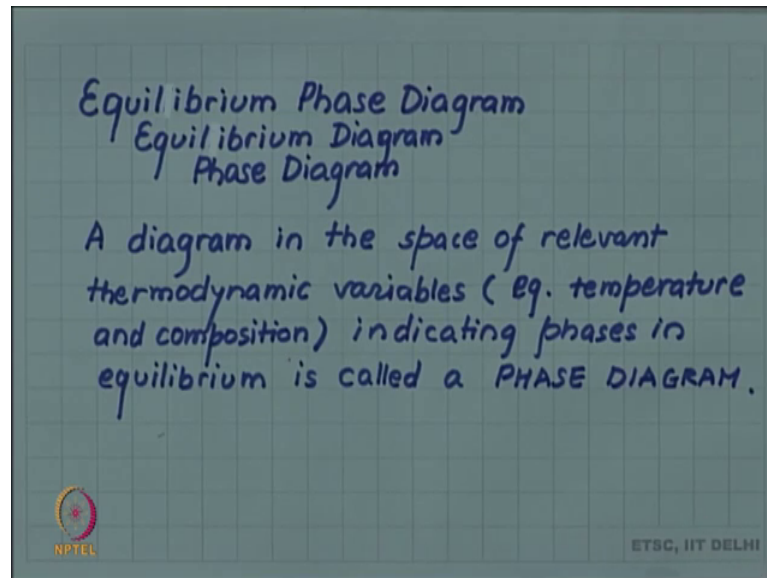 Equilibrium Phase Diagram
/ Equilibrium Diagram
/ Phase Diagram
A diagram in the space of relevant
thermodynamic variables (eg. temperature
and composition) indicating phases in
equilibrium is called a PHASE DIAGRAM.
NPTEL
ETSC, IIT DELHI